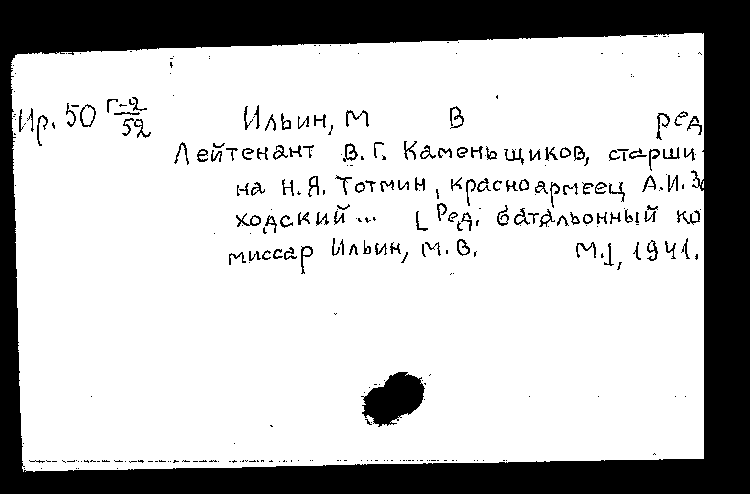 Ир. 50 Г-2/52 Ильин, М В ред
Лейтенант В.Г. Каменьщиков, старши-
на Н.Я. Тотмин, красноармеец А.И. За
ходский... [Ред. батальонный ко
миссар Ильин, М.В. М.], 1941.